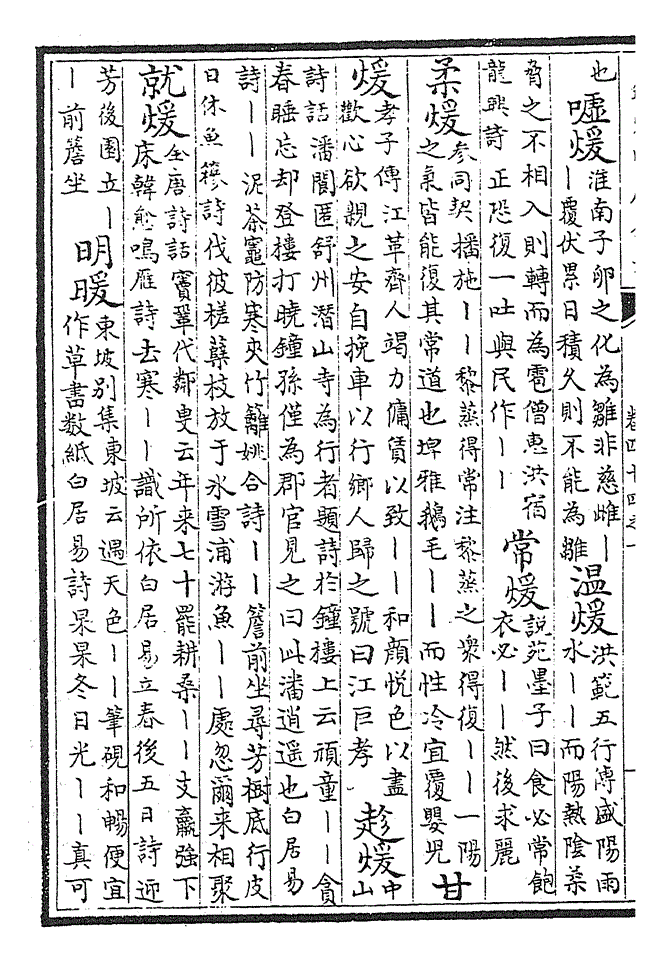 也
噓煖
淮南子卵之化為雛非慈雌丨
丨覆伏累日積久則不能為雛
溫煖
洪範五行傳盛陽雨
水丨丨而陽熱陰氣
脅之不相入則轉而為雹僧惠洪宿
龍興詩正恐復一吐與民作丨丨
常煖
說苑墨子曰食必常飽
衣必丨丨然後求麗
柔煖
參同契播施丨丨黎蒸得常注黎蒸之衆得復丨丨一陽
之氣皆能復其常道也埤雅鵝毛丨丨而性冷宜覆嬰兒
甘煖
孝子傳江革齊人竭力傭賃以致丨丨和顏悅色以盡
歡心欲親之安自挽車以行鄉人歸之號曰江巨孝
趁煖
中
山
詩話潘閬匿舒州潛山寺為行者題詩於鐘樓上云頑童丨丨貪
春睡忘却登樓打曉鐘孫僅為郡官見之曰此潘逍遥也白居易
詩丨丨泥茶竈防寒夾竹籬姚合詩丨丨簷前坐尋芳樹底行皮
日休魚䉷詩伐彼槎蘖枝放于氷雪浦游魚丨丨處忽爾来相聚
就煖
全唐詩話竇鞏代鄰叟云年来七十罷耕桑丨丨支羸強下
床韓愈鳴雁詩去寒丨丨識所依白居易立春後五日詩迎
芳後園立丨
丨前簷坐
明暖
東坡別集東坡云遇天色丨丨筆硯和暢便宜
作草書数紙白居易詩杲杲冬日光丨丨真可